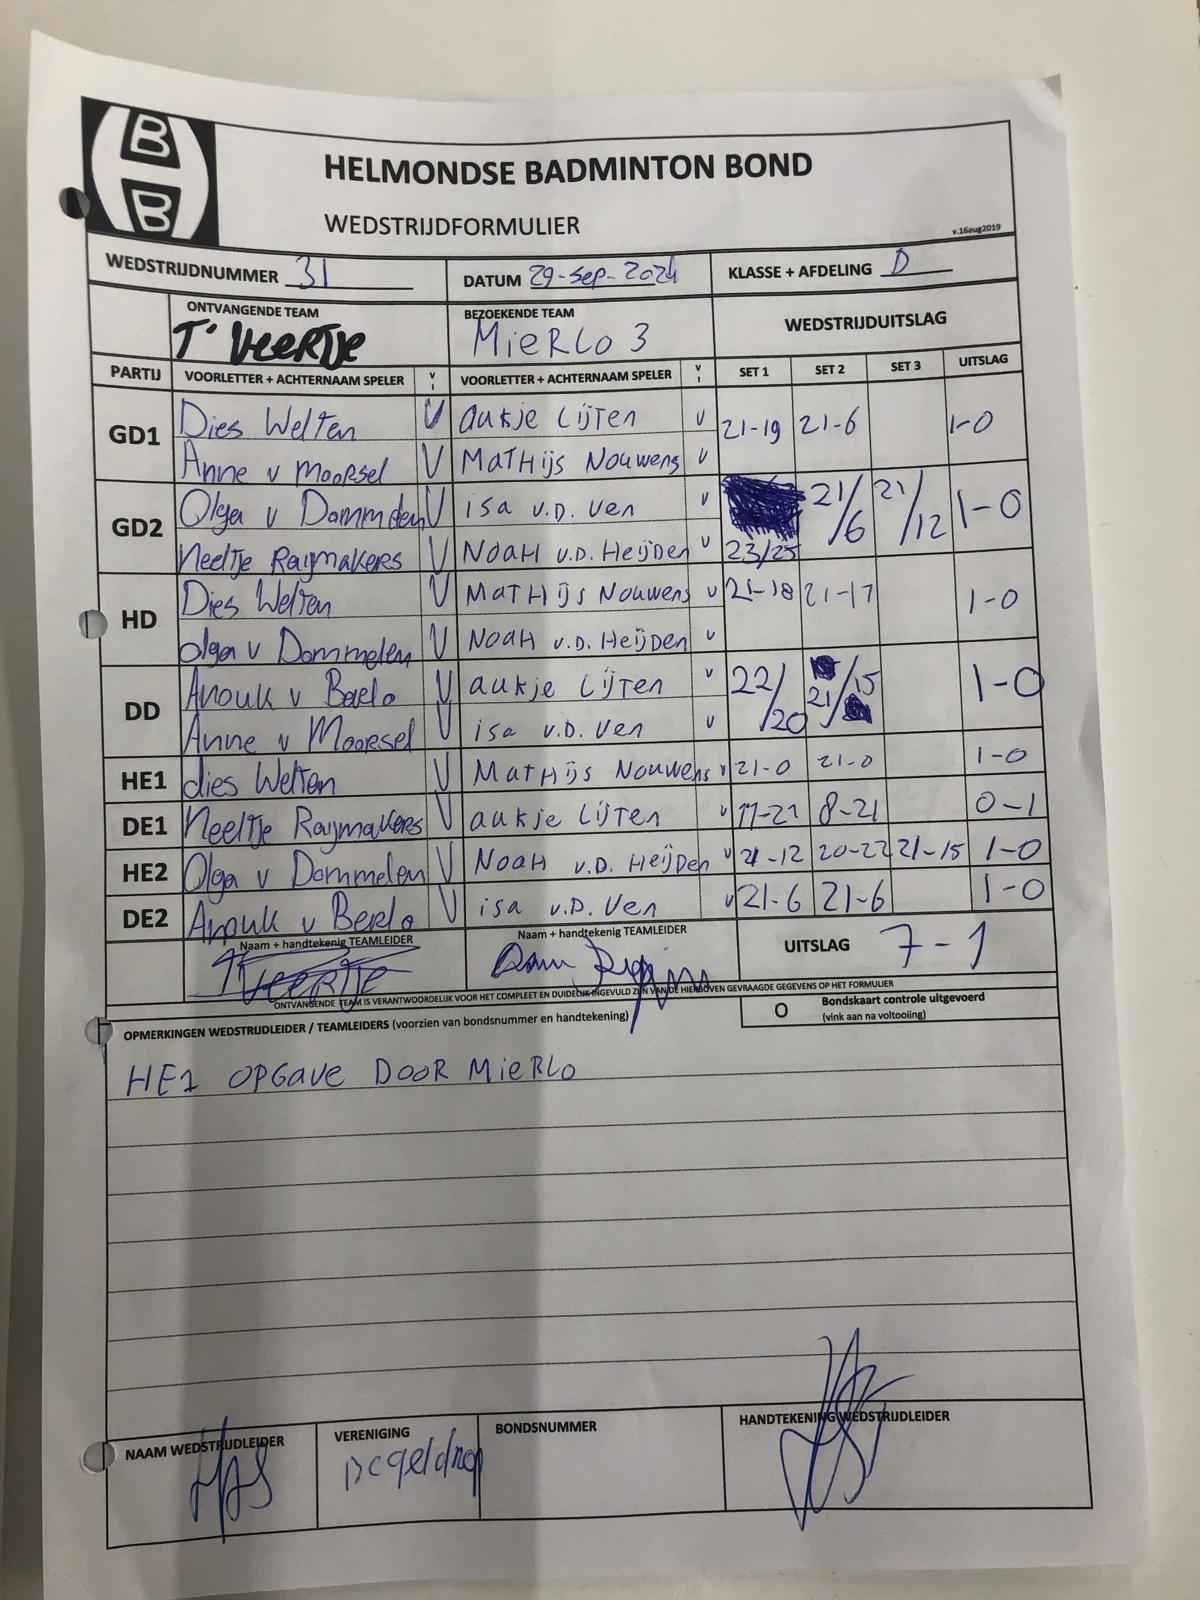 B
B
HELMONDSE BADMINTON BOND
WEDSTRIJDFORMULIER
v.16aug2019
WEDSTRIJDNUMMER 31 DATUM 29-Sep-2024 KLASSE + AFDELING D
ONTVANGENDE TEAM BEZOEKENDE TEAM WEDSTRIJDUITSLAG
T' Veertje Mierlo 3
PARTIJ VOORLETTER + ACHTERNAAM SPELER V I VOORLETTER + ACHTERNAAM SPELER V I SET 1 SET 2 SET 3 UITSLAG
GD1 Dies Welten V aukje Lijten v 21-19 21-6 1-0
Anne v Moorsel V Mathijs Nouwens v
GD2 Olga v Dommelen V isa v.D. Ven v 21/6 21/12 1-0
Neeltje Raijmakers V Noah v.D. Heijden v 23/25
HD Dies Welten V Mathijs Nouwens v 21-18 21-17 1-0
olga v Dommelen V Noah v.D. Heijden v
DD Anouk v Berlo V aukje Lijten v 22/20 21/15 1-0
Anne v Moorsel V isa v.D. Ven v
HE1 dies Welten V Mathijs Nouwens v 21-0 21-0 1-0
DE1 Neeltje Raijmakers V aukje Lijten v 17-21 8-21 0-1
HE2 Olga v Dommelen V Noah v.D. Heijden v 21-12 20-22 21-15 1-0
DE2 Anouk v Berlo V isa v.D. Ven v 21-6 21-6 1-0
Naam + handtekenig TEAMLEIDER Naam + handtekenig TEAMLEIDER UITSLAG 7-1
T Veertje
ONTVANGENDE TEAM IS VERANTWOORDELIJK VOOR HET COMPLEET EN DUIDELIJK INGEVULD ZIJN VAN DE HIERBOVEN GEVRAAGDE GEGEVENS OP HET FORMULIER
OPMERKINGEN WEDSTRIJDLEIDER / TEAMLEIDERS (voorzien van bondsnummer en handtekening) O Bondskaart controle uitgevoerd
(vink aan na voltooiing)
HE1 OPGAVE DOOR MIERLO
NAAM WEDSTRIJDLEIDER VERENIGING BONDSNUMMER HANDTEKENING WEDSTRIJDLEIDER
BCgeldrop